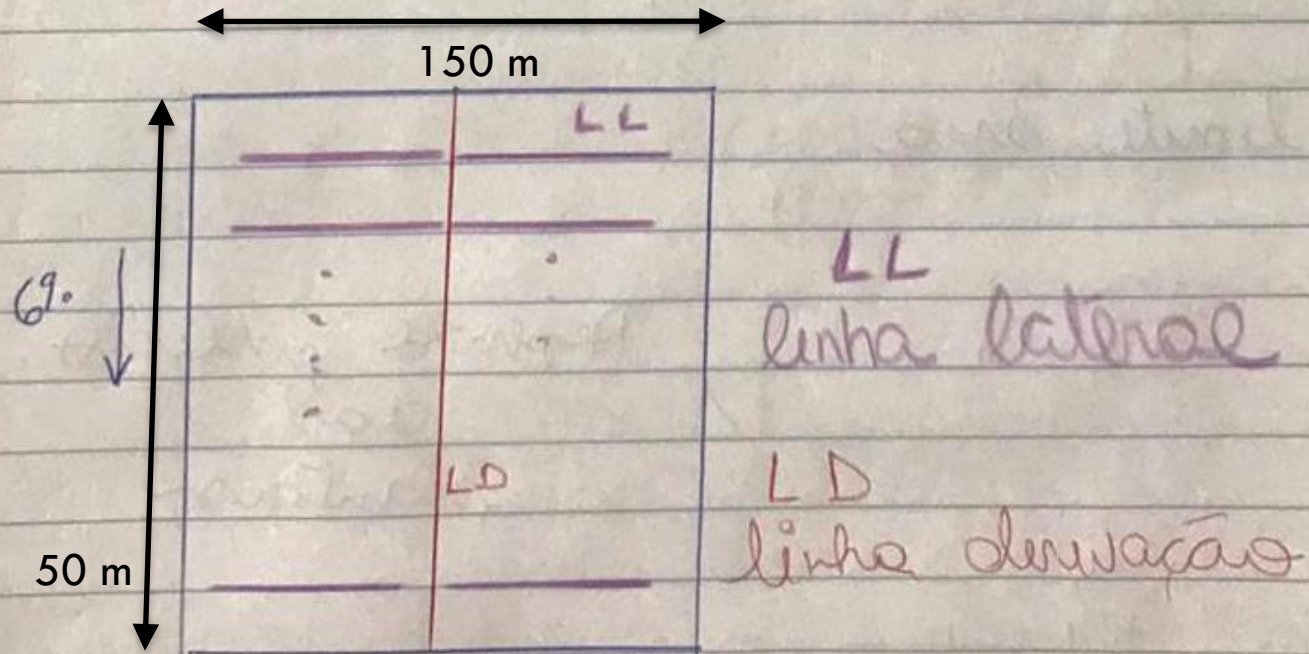 150 m
LL
6%
LL
linha lateral
LD
LD
linha derivação
50 m